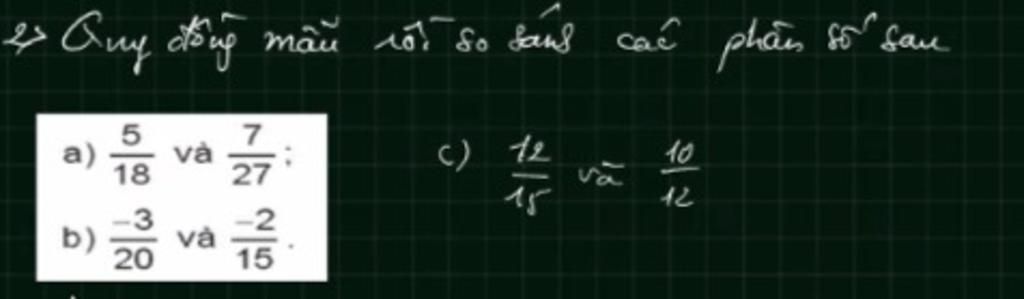 2) Quy đồng mẫu rồi so sánh các phân số sau
a) 5/18 và 7/27 ;
b) -3/20 và -2/15 .
c) 12/15 và 10/12